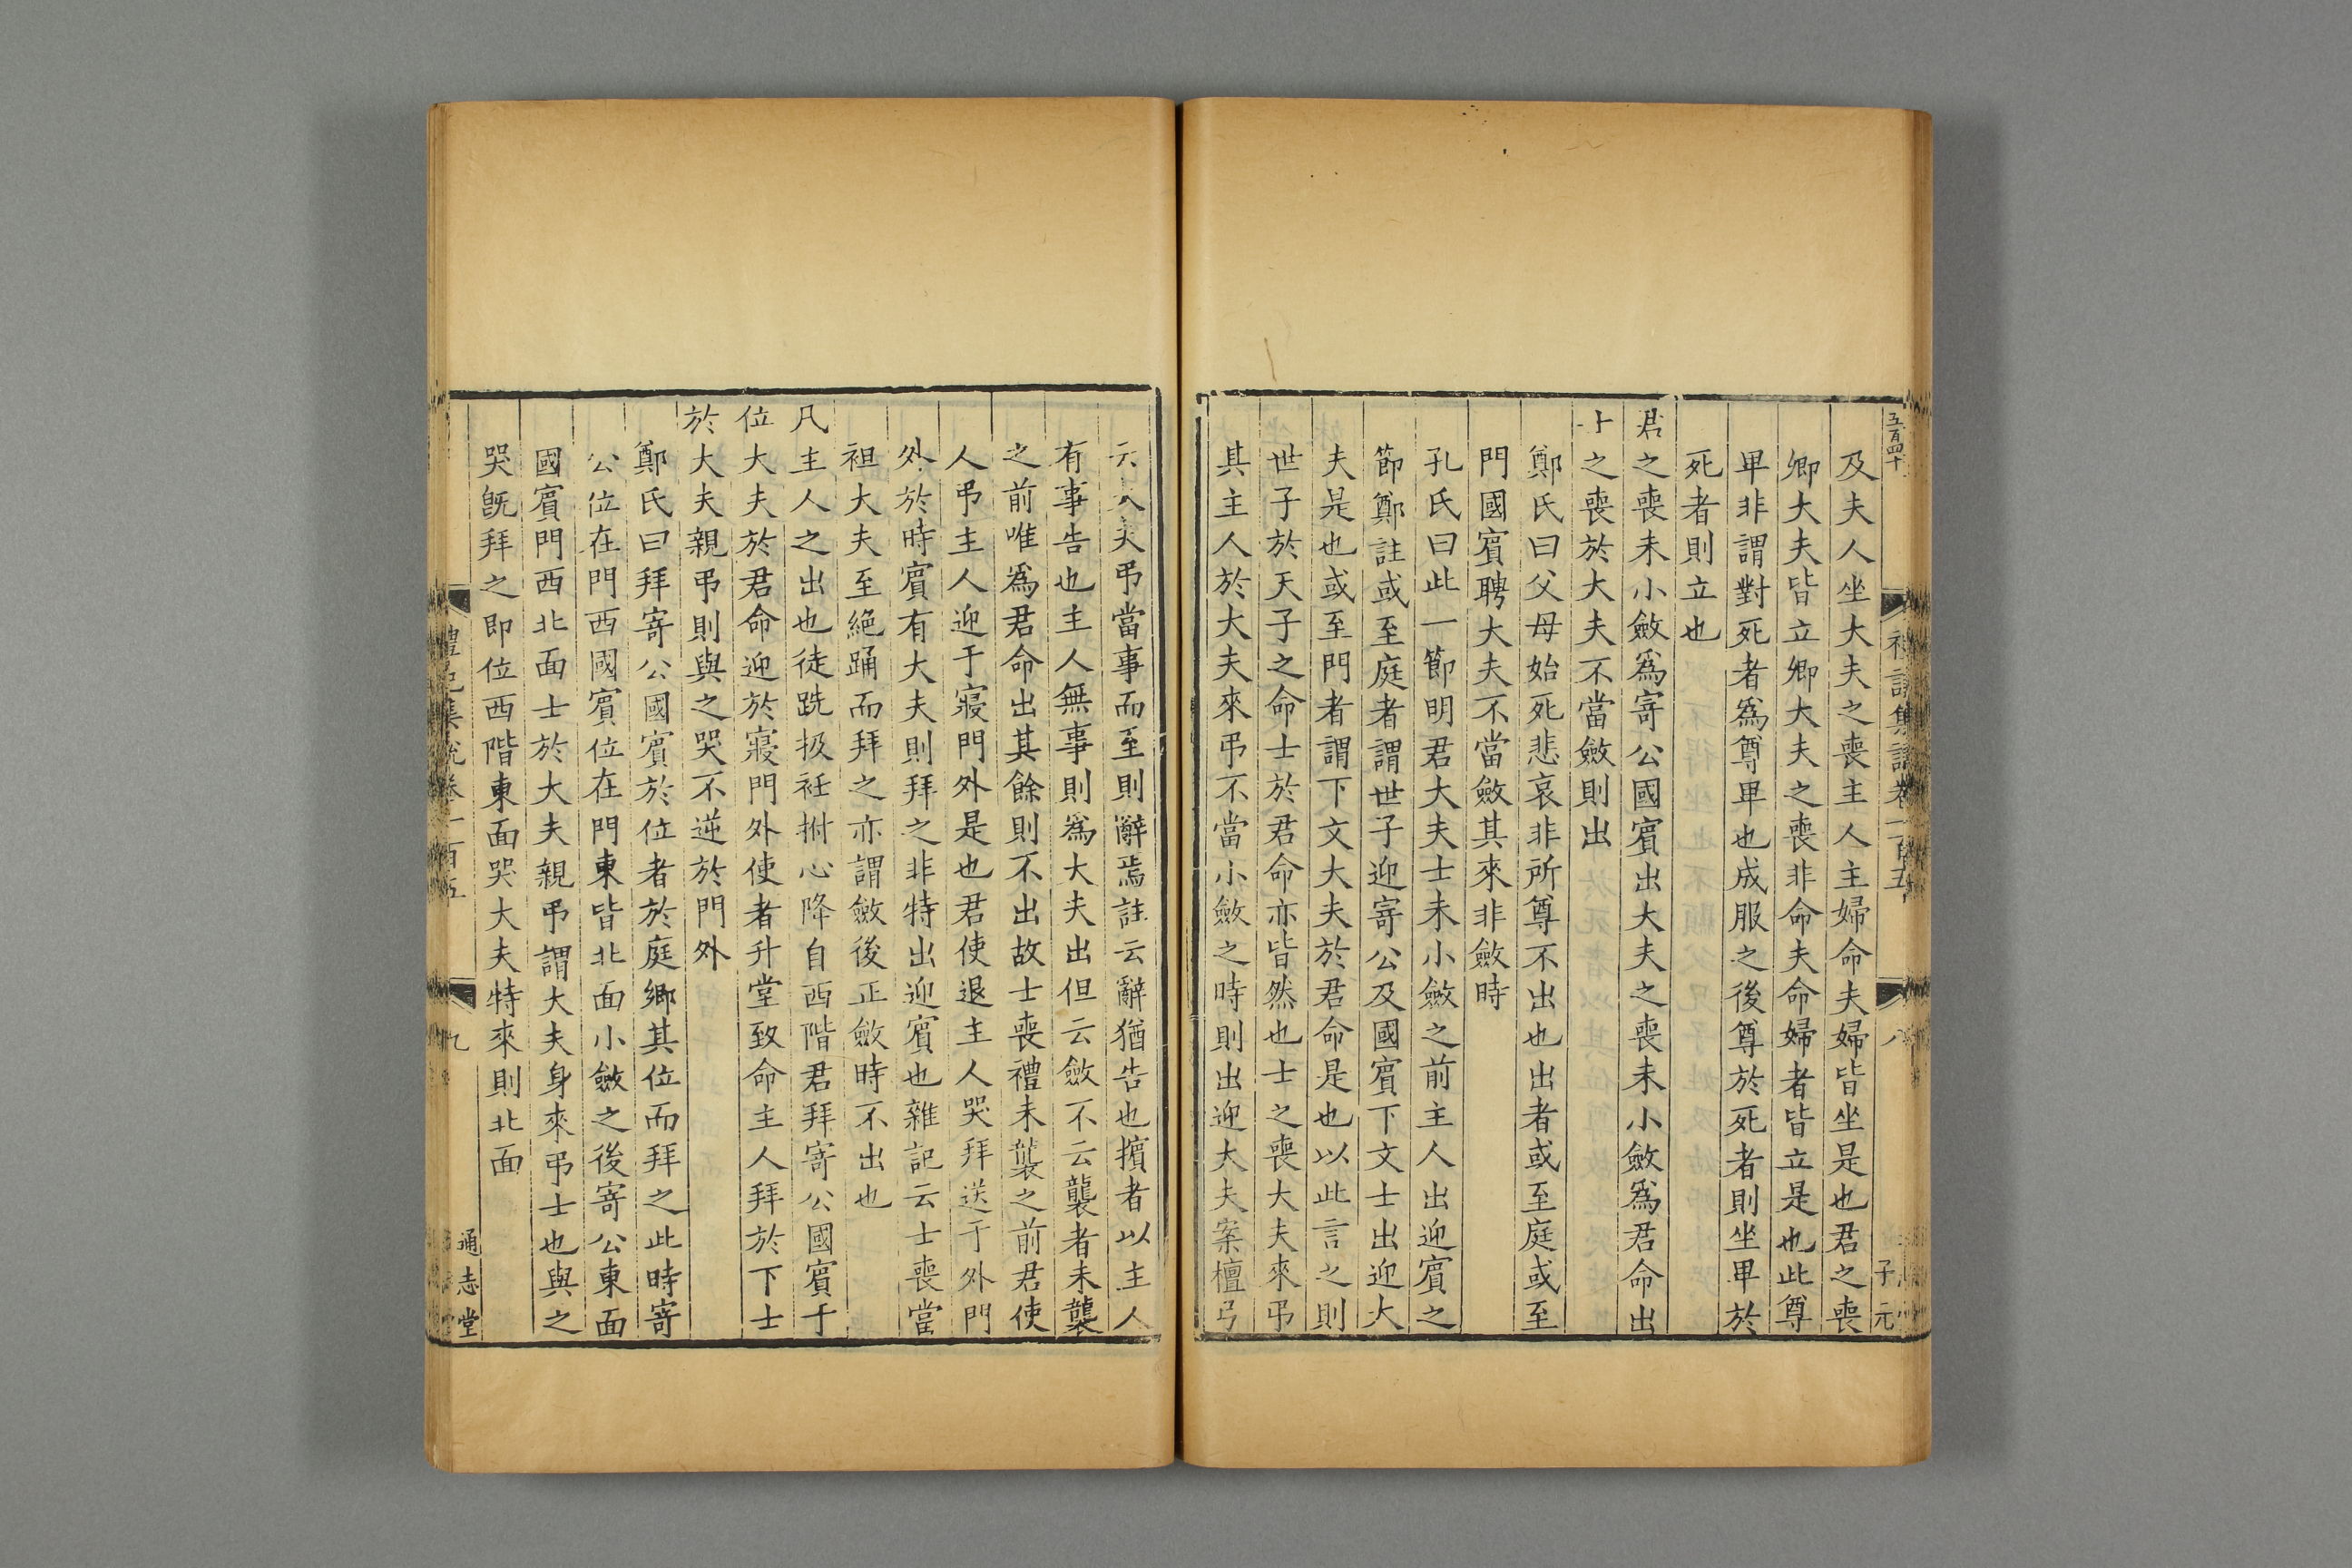 五百四十
禮記集說卷一百五
八
子元
及夫人坐大夫之喪主人主婦命夫命婦皆坐是也君之喪
卿大夫皆立卿大夫之喪非命夫命婦者皆立是也此尊
卑非謂對死者爲尊卑也成服之後尊於死者則坐卑於
死者則立也
君之喪未小斂爲寄公國賓出大夫之喪未小斂爲君命出
士之喪於大夫不當斂則出
鄭氏曰父母始死悲哀非所尊不出也出者或至庭或至
門國賓聘大夫不當斂其來非斂時
孔氏曰此一節明君大夫士未小斂之前主人出迎賓之
節鄭註或至庭者謂世子迎寄公及國賓下文士出迎大
夫是也或至門者謂下文大夫於君命是也以此言之則
世子於天子之命士於君命亦皆然也士之喪大夫來弔
其主人於大夫來弔不當小斂之時則出迎大夫案檀弓
云大夫弔當事而至則辭焉註云辭猶告也擯者以主人
有事告也主人無事則爲大夫出但云斂不云襲者未襲
之前唯爲君命出其餘則不出故士喪禮未襲之前君使
人弔主人迎于寢門外是也君使退主人哭拜送于外門
外於時賓有大夫則拜之非特出迎賓也雜記云士喪當
袒大夫至絕踊而拜之亦謂斂後正斂時不出也
凡主人之出也徒跣扱衽拊心降自西階君拜寄公國賓于
位大夫於君命迎於寢門外使者升堂致命主人拜於下士
於大夫親弔則與之哭不逆於門外
鄭氏曰拜寄公國賓於位者於庭鄉其位而拜之此時寄
公位在門西國賓位在門東皆北面小斂之後寄公東面
國賓門西北面士於大夫親弔謂大夫身來弔士也與之
哭旣拜之即位西階東面哭大夫特來則北面
禮記集說卷一百五
九
通志堂